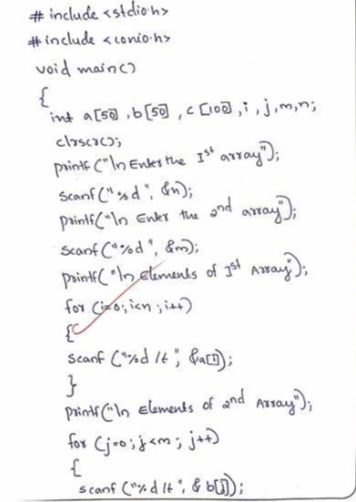 # include <stdio.h>
# include <conio.h>
void main()
{
int a[50], b[50], c[100], i, j, m, n;
clrscr();
printf ("\n Enter the Ist array");
scanf ("%d", &n);
printf("\n Enter the 2nd array");
scanf ("%d", &m);
printf ("\n Elements of Ist Array");
for (i=0; i<n; i++)
{
scanf ("%d \t", &a[i]);
}
printf ("\n Elements of 2nd Array");
for (j=0; j<m; j++)
{
scanf ("%d \t", & b[j]);